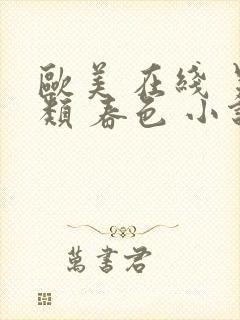 歐美 在綫
類 春色 小
萬書君